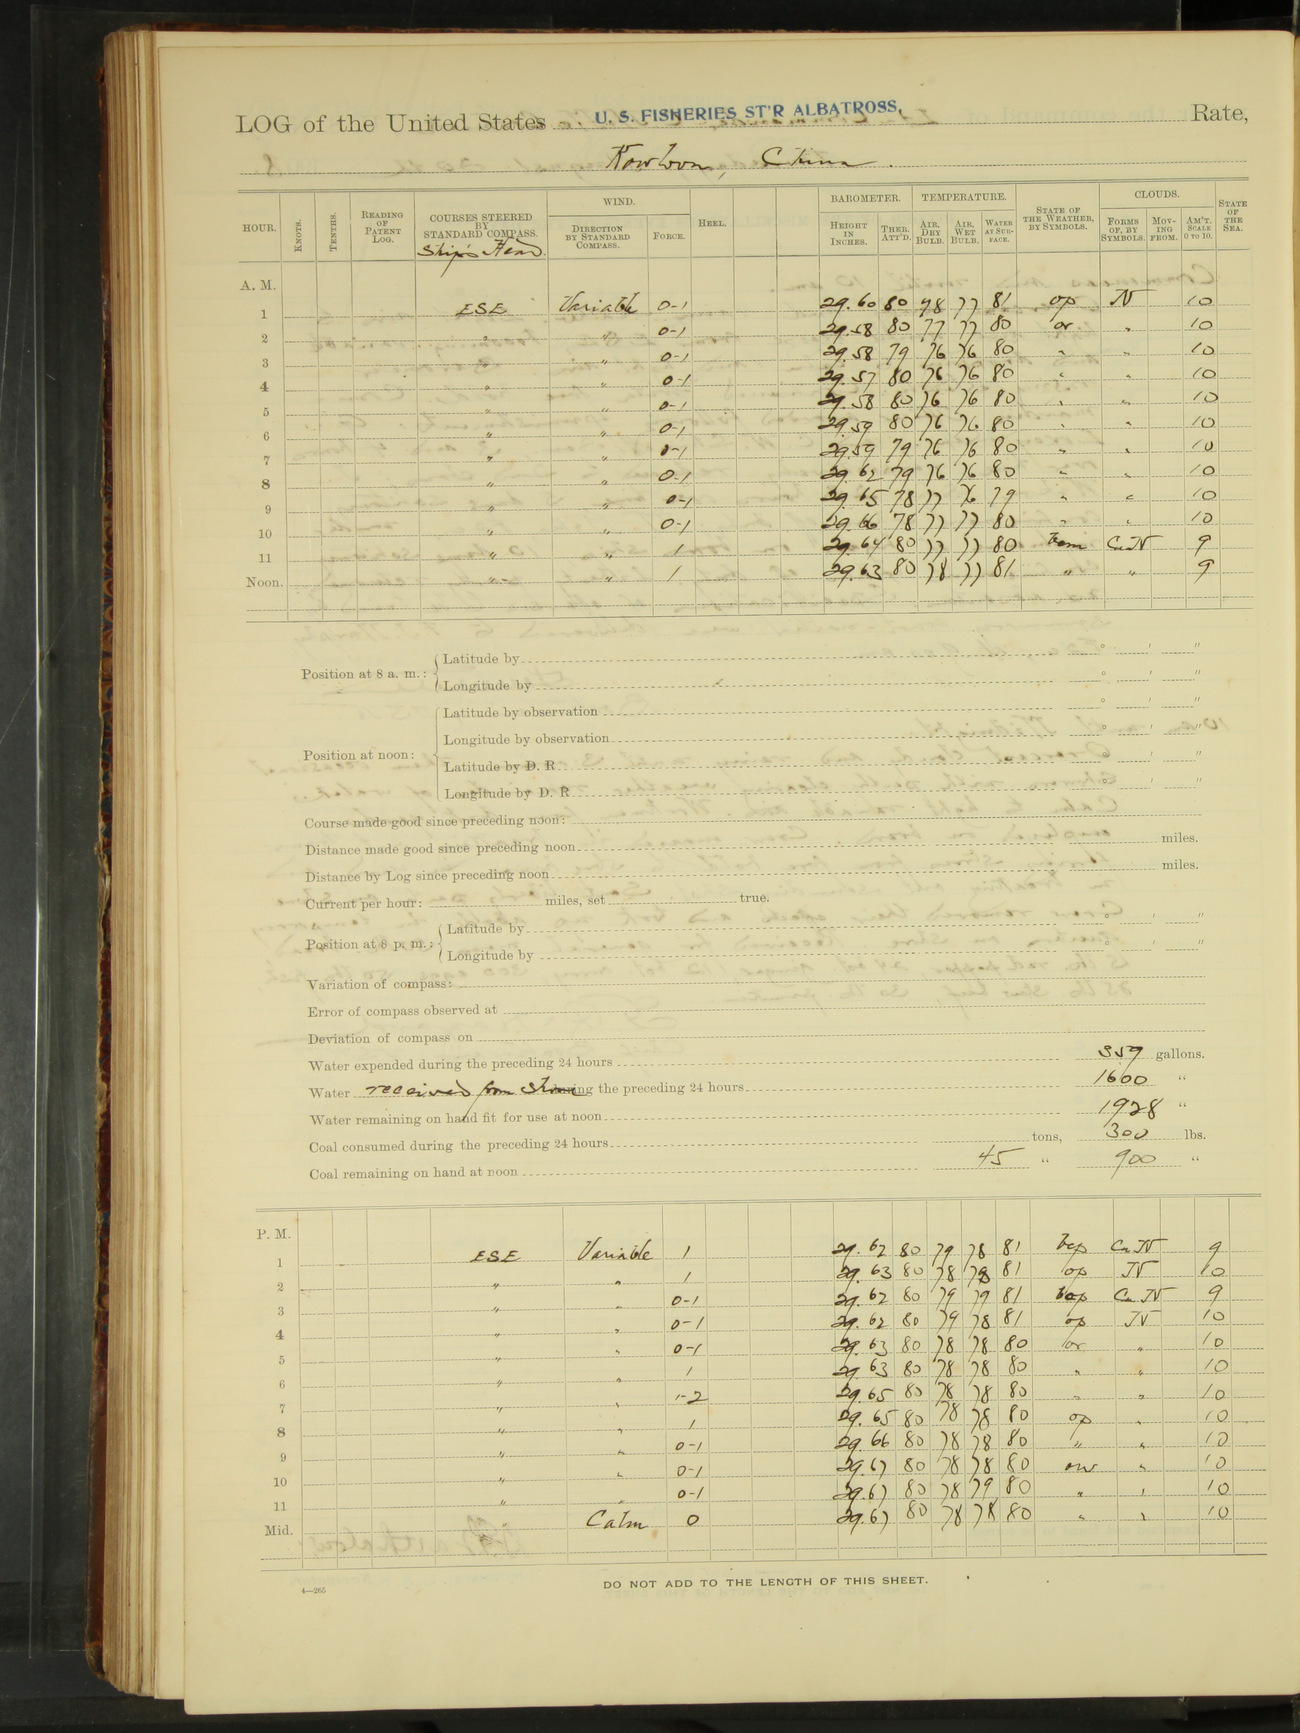 LOG of the United States U. S. FISHERIES ST'R ALBATROSS, Rate,
Kowloon, China.
HOUR. KNOTS. TENTHS. READING OF PATENT LOG. COURSES STEERED BY STANDARD COMPASS. Ship's Head WIND. DIRECTION BY STANDARD COMPASS. FORCE. HEEL. BAROMETER. HEIGHT IN INCHES. THER. ATT'D. TEMPERATURE. AIR, DRY BULB. AIR, WET BULB. WATER AT SURFACE. STATE OF THE WEATHER, BY SYMBOLS. CLOUDS. FORMS OF, BY SYMBOLS. MOVING FROM. AM'T. SCALE 0 TO 10. STATE OF THE SEA.
A. M.
1 ESE Variable 0-1 29.60 80 78 77 81 op N 10
2 " " 0-1 29.58 80 77 77 80 or " 10
3 " " 0-1 29.58 79 76 76 80 " " 10
4 " " 0-1 29.57 80 76 76 80 " " 10
5 " " 0-1 29.58 80 76 76 80 " " 10
6 " " 0-1 29.59 80 76 76 80 " " 10
7 " " 0-1 29.59 79 76 76 80 " " 10
8 " " 0-1 29.62 79 76 76 80 " " 10
9 " " 0-1 29.65 78 77 76 79 " " 10
10 " " 0-1 29.66 78 77 77 80 " " 10
11 " " 1 29.64 80 77 77 80 Cu N 9
Noon. " " 1 29.63 80 78 77 81 " " 9
Position at 8 a. m.: Latitude by ° ' "
Longitude by ° ' "
Position at noon: Latitude by observation ° ' "
Longitude by observation ° ' "
Latitude by D. R ° ' "
Longitude by D. R ° ' "
Course made good since preceding noon:
Distance made good since preceding noon miles.
Distance by Log since preceding noon miles.
Current per hour: miles, set true.
Position at 8 p. m.: Latitude by ° ' "
Longitude by ° ' "
Variation of compass:
Error of compass observed at
Deviation of compass on
Water expended during the preceding 24 hours 359 gallons.
Water received from shore during the preceding 24 hours 1600 "
Water remaining on hand fit for use at noon 1928 "
Coal consumed during the preceding 24 hours tons, 300 lbs.
Coal remaining on hand at noon 45 " 900 "
P. M.
1 ESE Variable 1 29.62 80 79 78 81 bcp Cu N 9
2 " " 1 29.63 80 78 78 81 op N 10
3 " " 0-1 29.62 80 79 79 81 bcp Cu N 9
4 " " 0-1 29.62 80 79 78 81 op N 10
5 " " 0-1 29.63 80 78 78 80 or " 10
6 " " 1 29.63 80 78 78 80 " " 10
7 " " 1-2 29.65 80 78 78 80 " " 10
8 " " 1 29.65 80 78 78 80 op " 10
9 " " 0-1 29.66 80 78 78 80 " " 10
10 " " 0-1 29.67 80 78 78 80 " 10
11 " " 0-1 29.67 80 78 79 80 " " 10
Mid. " Calm 0 29.67 80 78 78 80 " " 10
4—265
DO NOT ADD TO THE LENGTH OF THIS SHEET.